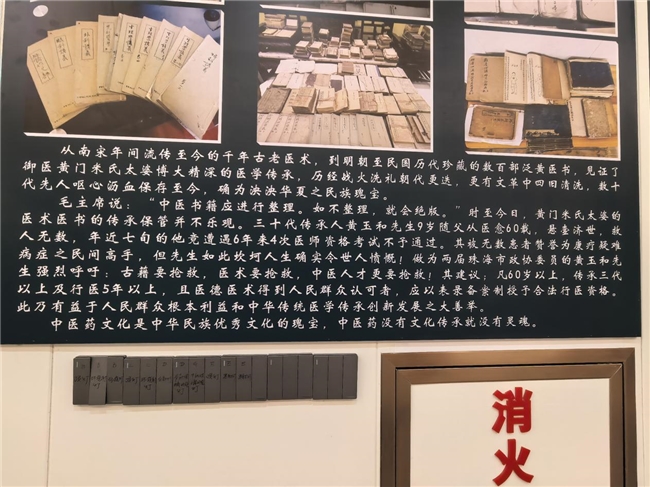 从南宋年间流传至今的千年古老医术，到明朝至民国历代珍藏的数百部泛黄医书，见证了
御医黄门米氏太婆博大精深的医学传承，历经战火洗礼朝代更迭，更有文革中四旧清洗，数十
代先人呕心沥血保存至今，确为泱泱华夏之民族瑰宝。
毛主席说：“中医书籍应进行整理。如不整理，就会绝版。”时至今日，黄门米氏太婆的
医术医书的传承保管并不乐观。三十代传承人黄玉和先生9岁随父从医愈60载，悬壶济世，救
人无数，年近七旬的他竟遭遇6年来4次医师资格考试不予通过。其被无数患者赞誉为康疗疑难
病症之民间高手，但先生如此坎坷人生确实令世人惜慨！做为两届珠海市政协委员的黄玉和先
生强烈呼吁：古籍要抢救，医术要抢救，中医人才更要抢救！其建议：凡60岁以上，传承三代
以上及行医5年以上，且医德医术得到人民群众认可者，应以来录备案制授予合法行医资格。
此乃有益于人民群众根本利益和中华传统医学传承创新发展之大善举。
中医药文化是中华民族优秀文化的瑰宝，中医药没有文化传承就没有灵魂。
消
火